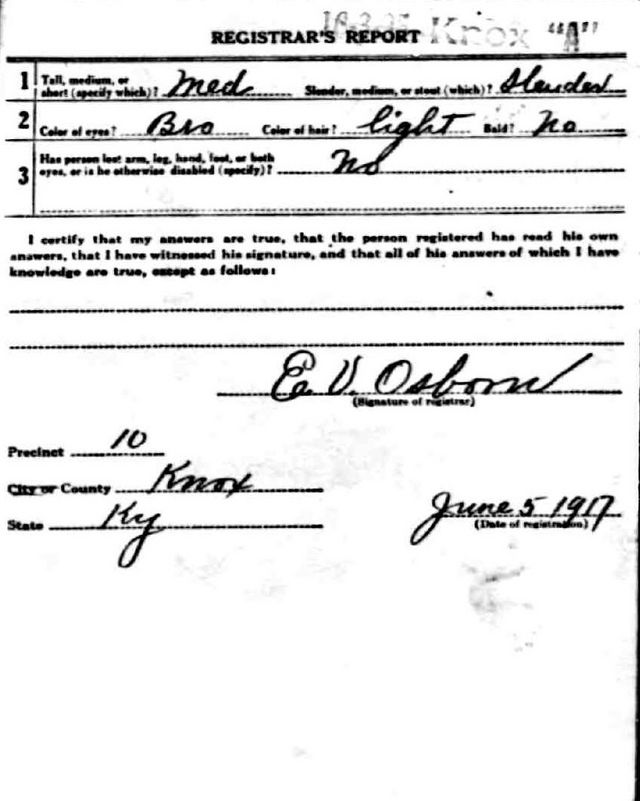 Knox "A"
REGISTRAR'S REPORT
1 Tall, medium, or short (specify which)? Med Slender, medium, or stout (which)? Slender
2 Color of eyes? Bro Color of hair? light Bald? No
3 Has person lost arm, leg, hand, foot, or both
eyes, or is he otherwise disabled (specify)? No
I certify that my answers are true, that the person registered has read his own
answers, that I have witnessed his signature, and that all of his answers of which I have
knowledge are true, except as follows:
E. V. Osborn
(Signature of registrar)
Precinct 10
City or County Knox
State Ky
June 5 1917
(Date of registration)